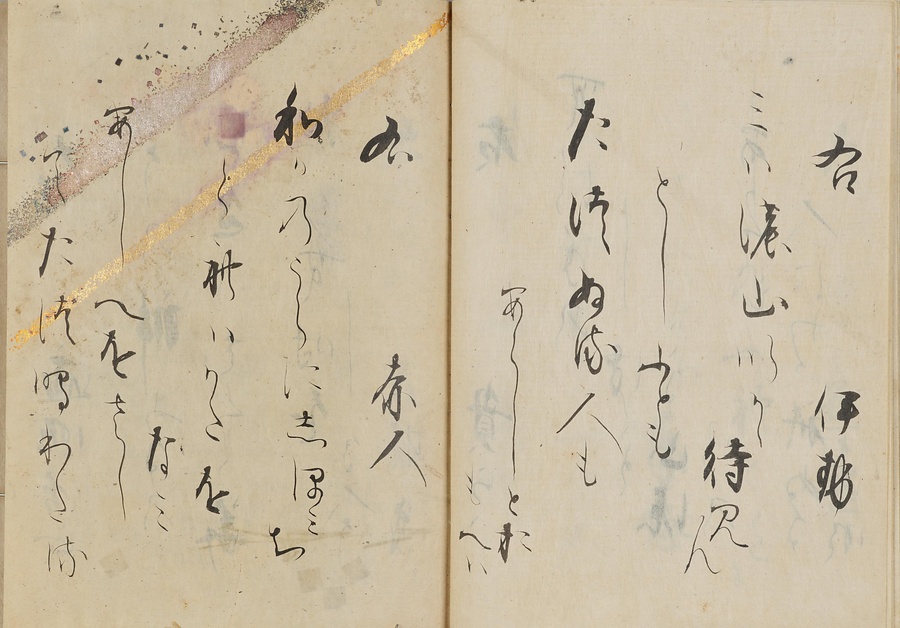 右 伊勢
三わの山いかに待見ん
としふとも
たつぬる人も
あらしとおもへは
右 赤人
和かのうらに志ほみち
くれはかたを
なみ
あしへをさし
てたつ鳴わたる